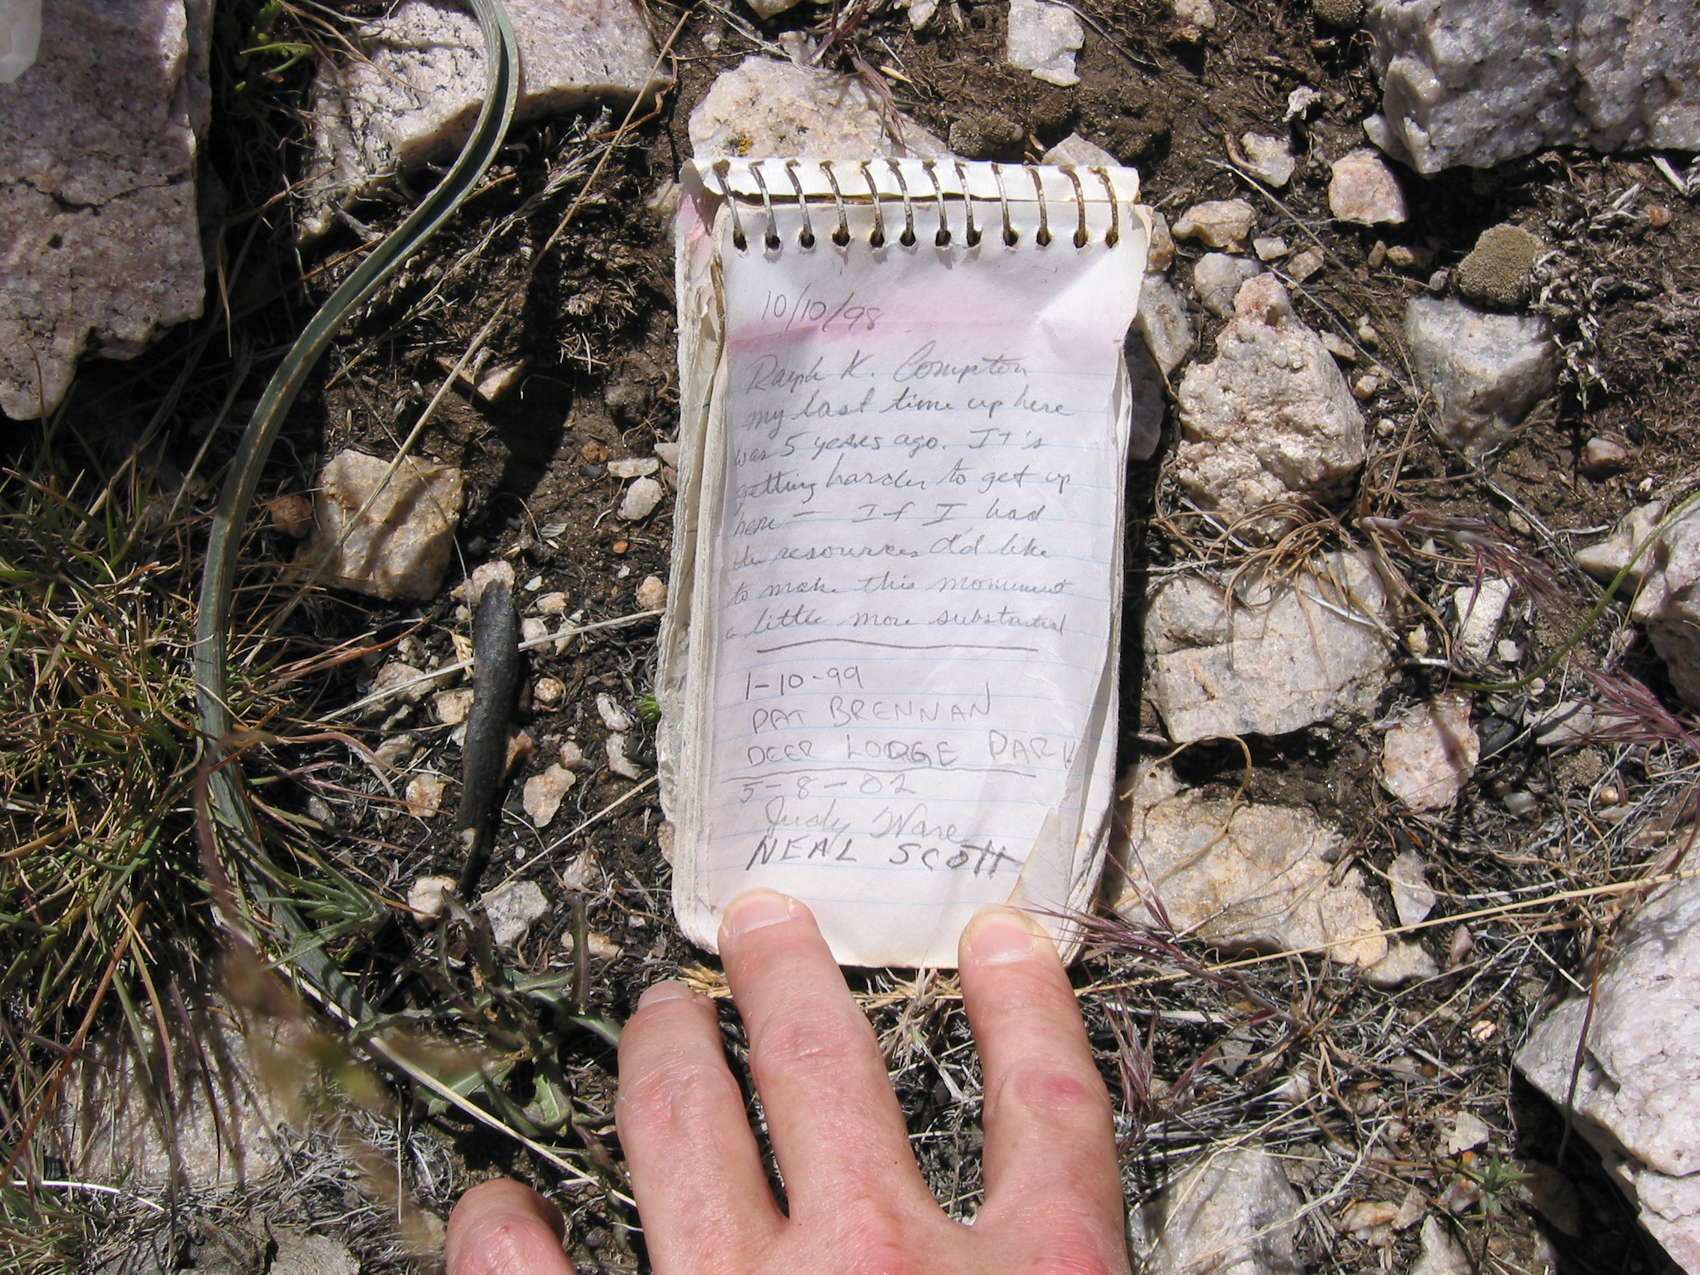 10/10/98
Ralph K. Compton
my last time up here
was 5 years ago. It's
getting harder to get up
here — If I had
the resources I'd like
to make this monument
a little more substantial
1-10-99
PAT BRENNAN
DEER LODGE PARK
5-8-02
Judy Ware
NEAL SCOTT